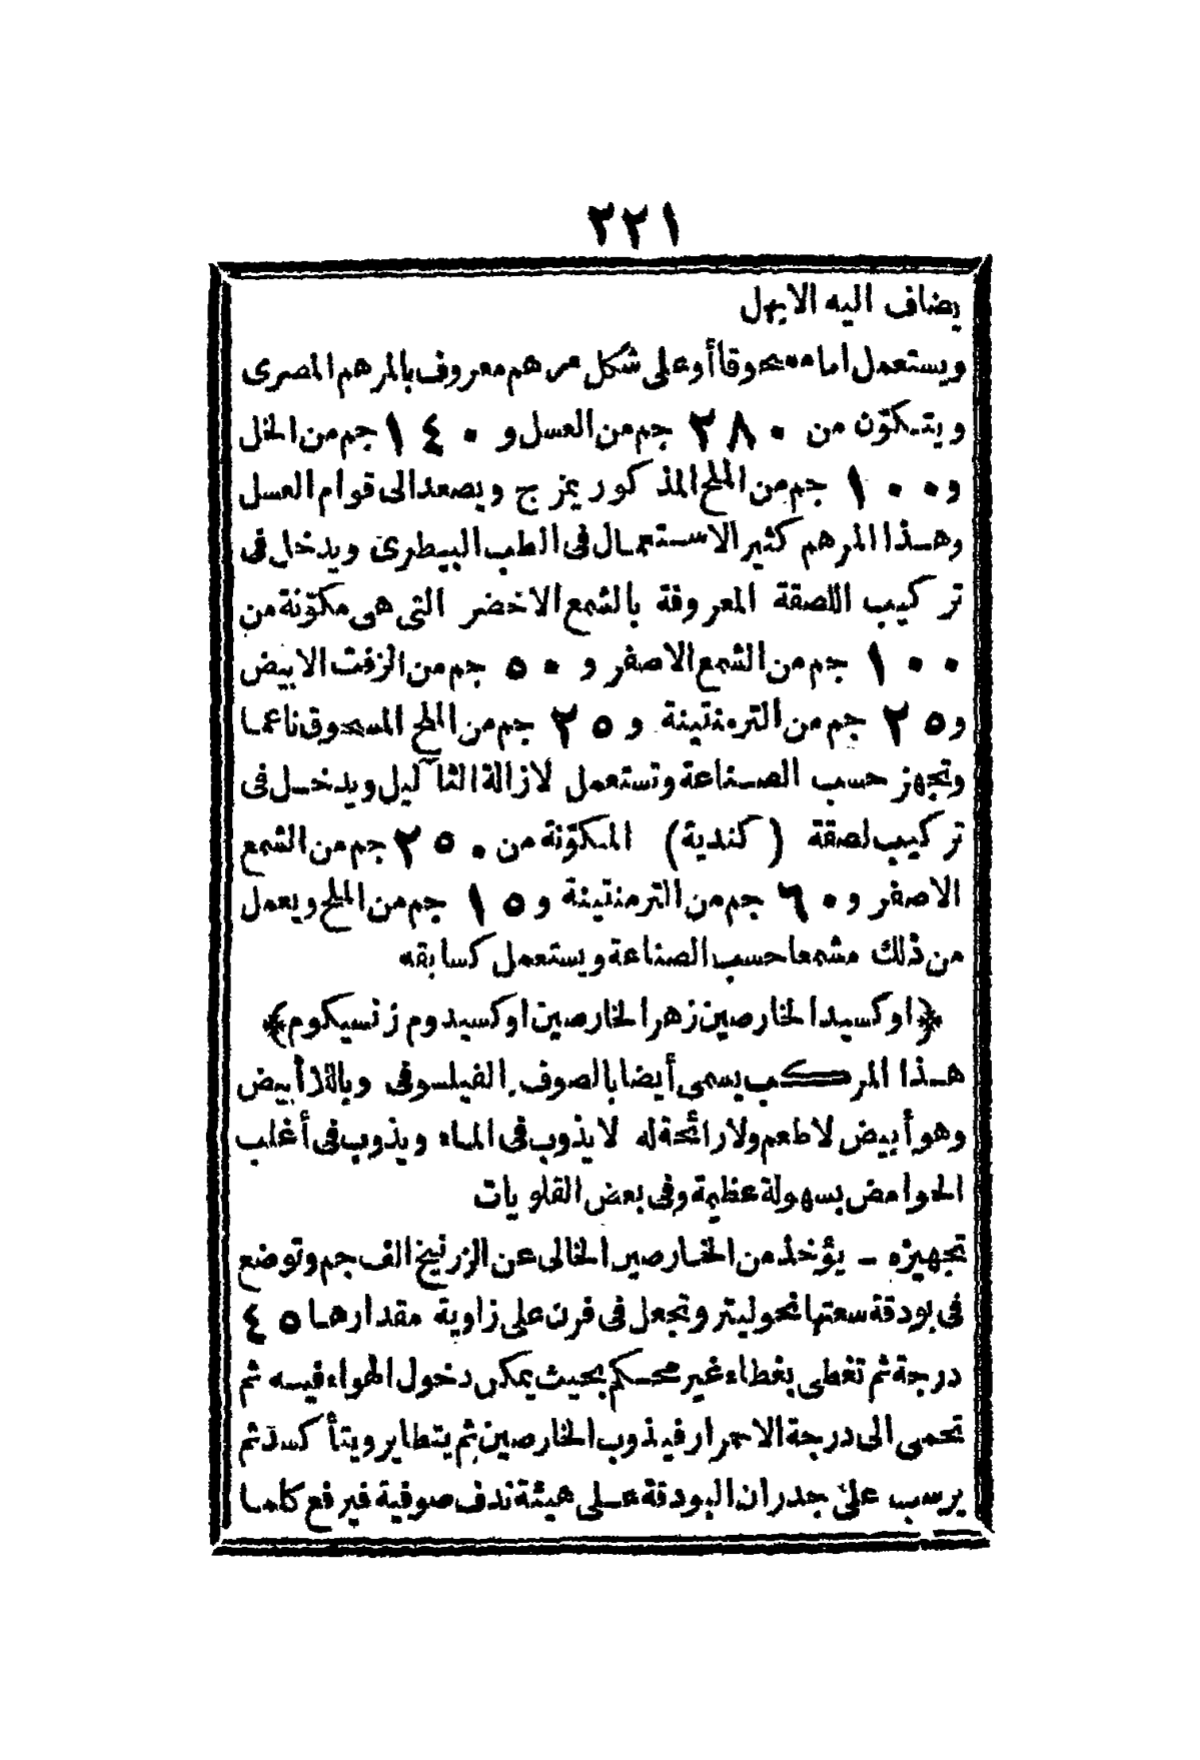 ٢٢١
يضاف اليه الابهل
ويستعمل اما مسحوقا أو على شكل مرهم معروف بالمرهم المصرى
ويتكوّن من ٢٨٠ جم من العسل و ١٤٠ جم من الخل
و ١٠٠ جم من الملح المذكور يمزج ويصعد الى قوام العسل
وهذا المرهم كثير الاستعمال فى الطب البيطرى ويدخل فى
تركيب اللصقة المعروفة بالشمع الاخضر التى هى مكوّنة من
١٠٠ جم من الشمع الاصفر و ٥٠ جم من الزفت الابيض
و ٢٥ جم من الترمنتينة و ٢٥ جم من الملح المسحوق ناعما
وتجهز حسب الصناعة وتستعمل لازالة الثآليل ويدخل فى
تركيب لصقة (كندية) المكوّنة من ٢٥٠ جم من الشمع
الاصفر و ٦٠ جم من الترمنتينة و ١٥ جم من الملح ويعمل
من ذلك مشمعا حسب الصناعة ويستعمل كسابقه
﴿اوكسيد الخارصين زهر الخارصين اوكسيدوم زنسيكوم﴾
هذا المركب يسمى أيضا بالصوف الفيلسوفى وباللا أبيض
وهو أبيض لا طعم ولا رائحة له لا يذوب فى الماء ويذوب فى أغلب
الحوامض بسهولة عظيمة وفى بعض القلويات
تجهيزه – يؤخذ من الخارصين الخالى عن الزرنيخ الف جم وتوضع
فى بودقة سعتها نحو ليتر وتجعل فى فرن على زاوية مقدارها ٤٥
درجة ثم تغطى بغطاء غير محكم بحيث يمكن دخول الهواء فيه ثم
تحمى الى درجة الاحمرار فيذوب الخارصين ثم يتطاير ويتأكسد ثم
يرسب على جدران البودقة على هيئة ندف صوفية فيرفع كلما